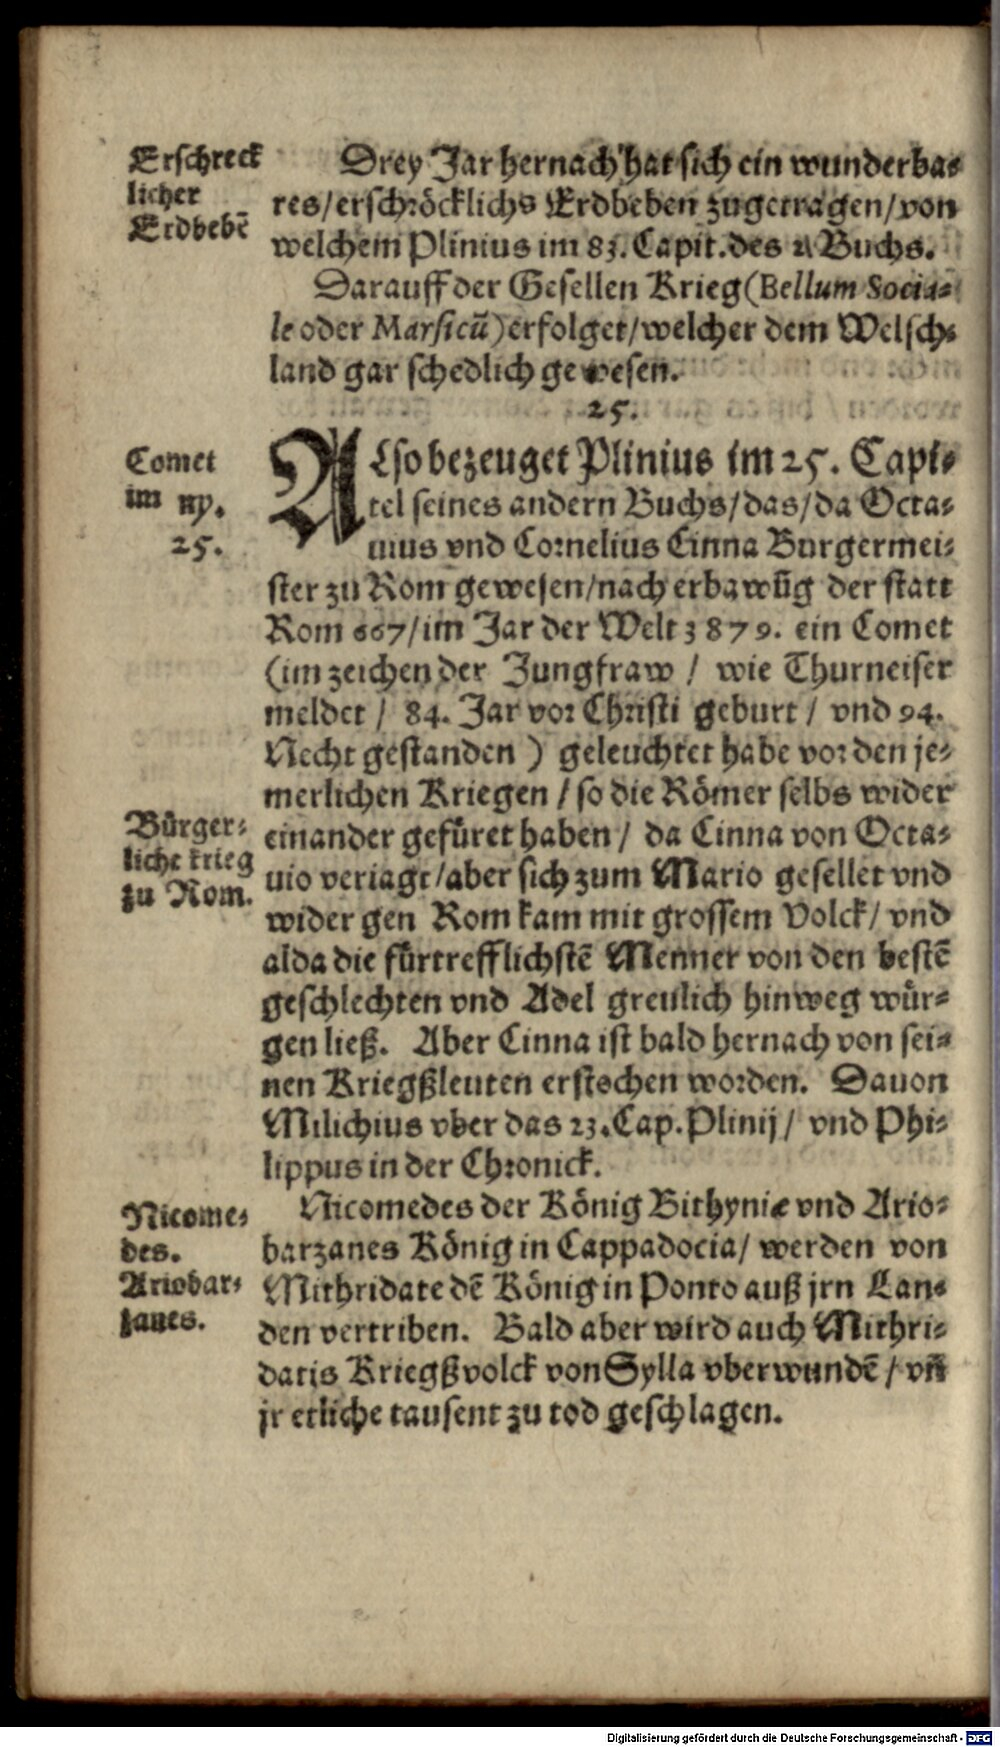 Erschreck
licher
Erdbebē
Drey Jar hernach hat sich ein wunderba⸗
res/erschröcklichs Erdbeben zugetragen/von
welchem Plinius im 83. Capit. des 2. Buchs.
Darauff der Gesellen Krieg (Bellum Socia⸗
le oder Marsicū) erfolget/welcher dem Welsch⸗
land gar schedlich gewesen.
25.
Comet
im ny.
25.
ALso bezeuget Plinius im 25. Capi⸗
tel seines andern Buchs/das/da Octa⸗
uius vnd Cornelius Cinna Burgermei⸗
ster zu Rom gewesen/nach erbawūg der statt
Rom 667/im Jar der Welt 3879. ein Comet
(im zeichen der Jungfraw / wie Thurneiser
meldet / 84. Jar vor Christi geburt / vnd 94.
Necht gestanden ) geleuchtet habe vor den je⸗
merlichen Kriegen / so die Römer selbs wider
Bürger⸗
liche krieg
zu Rom.
einander gefüret haben / da Cinna von Octa⸗
uio veriagt/aber sich zum Mario gesellet vnd
wider gen Rom kam mit grossem Volck/ vnd
alda die fürtrefflichstē Menner von den bestē
geschlechten vnd Adel greulich hinweg wür⸗
gen ließ. Aber Cinna ist bald hernach von sei⸗
nen Kriegßleuten erstochen worden. Dauon
Milichius vber das 23. Cap. Plinij/ vnd Phi⸗
lippus in der Chronick.
Nicome⸗
des.
Ariobar⸗
zanes.
Nicomedes der König Bithyniæ vnd Ario⸗
barzanes König in Cappadocia/ werden von
Mithridate dē König in Ponto auß jrn Lan⸗
den vertriben. Bald aber wird auch Mithri⸗
datis Kriegßvolck von Sylla vberwundē / vñ
jr etliche tausent zu tod geschlagen.
Digitalisierung gefördert durch die Deutsche Forschungsgemeinschaft - DFG